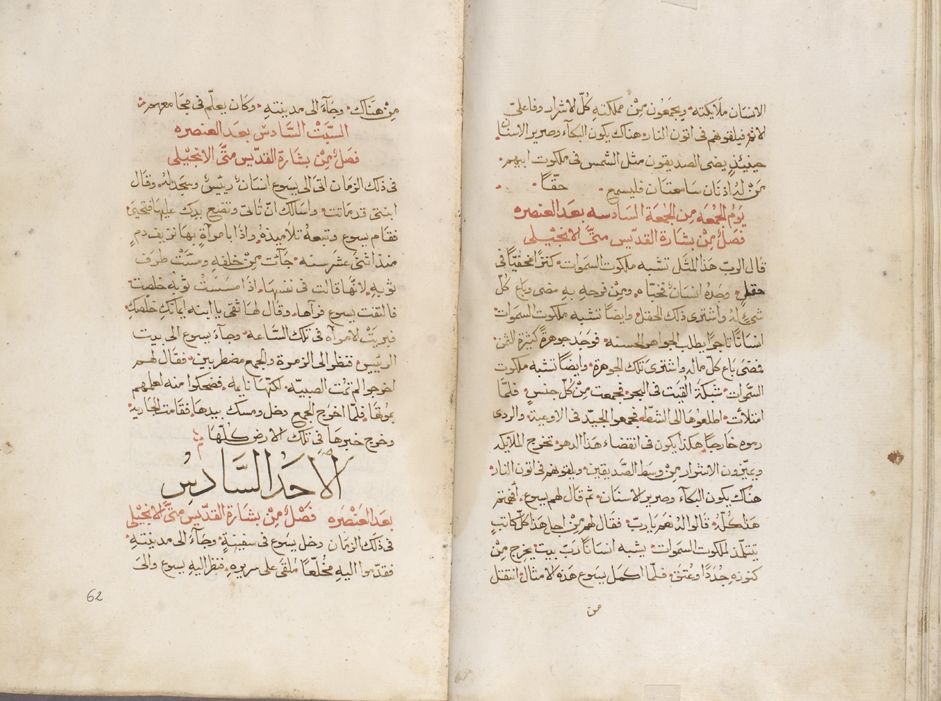 الانسان ملايكته ويجمعون من مملكته كل الاشرار وفاعلي
الاثم فيلقوهم في اتون النار هناك يكون البكآء وصرير الاسنان
حينيذٍ يضى الصديقون مثل الشمس في ملكوت ابيهم
من له اذنان سامعتان فليسمع حقًّا
يوم الجمعه من الجمعة السادسه بعد العنصره
فصل من بشارة القديس متى الانجيلى
قال الرب هذا المثل تشبه ملكوت السموات كنزًا مخفيًّا في
حقلٍ وجده انسان فخباه ومن فرحه به مضى وباع كل
شي له واشترى ذلك الحقل وايضًا تشبه ملكوت السموات
انسانًا تاجرًا يطلب الجواهر الحسنه فوجد جوهرةً كثيرة الثمن
فمضى باع كل ماله واشترى تلك الجوهرة وايضًا تشبه ملكوت
السموات شبكة القيت في البحر فجمعت من كل جنس فلمّا
امتلأت اطلعوها الى الشط فجمعوا الجيّد في الاوعية والردى
رموه خارجًا هكذا يكون في انقضاء هذا الدهر تخرج الملايكه
ويميّزون الاشرار من وسط الصديقين ويلقوهم في اتون النار
هناك يكون البكآء وصرير الاسنان ثم قال لهم يسوع أفهمتم
هذا كلّه قالوا له نعم يا ربّ فقال لهم من اجل هذا كلّ كاتب
يتتلمذ لملكوت السموات يشبه انسانًا رَبّ بيت يخرج من
كنوزه جُدُدًا وعُتق فلمّا اكمل يسوع هذه الامثال انتقل
من
من هناك وجآء الى مدينته وكان يعلّم في مجامعهم
السبت السادس بعد العنصره
فصل من بشارة القديس متى الانجيلى
في ذلك الزمان اتى الى يسوع انسان رييس وسجد له وقال
ابنتى قد ماتت واسالك انّ تأتى وتضع يدك عليها فتحيى
فقام يسوع وتبعهُ تلاميذهُ واذا بامرأةٍ بها نزيف دمٍ
منذ اثنتى عشر سنه جآت من خلفه ومسّت طرف
ثوبه لانها قالت في نفسها اذا مسست ثوبه خلصت
فالتفت يسوع فرآها وقال لها ثقى يا ابنه ايمانكِ خلصكِ
فبريت الامرأه في تلك السّاعه وجآء يسوع الى بيت
الرييس فنظر الى الزمرة والجمع مضطربين فقال لهم
اخرجوا لم تمت الصبيه لكنها نايمه فضحكوا منه لعلمهم
بموتها فلمّا اخرج الجمع دخل ومسك بيدها فقامت الجاريه
وخرج خبرها في تلك الارض كلّها
الاحد السادس
بعد العنصره فصل من بشارة القديس متى الانجيلى
في ذلك الزمان دخل يسوع في سفينةٍ وجآء الى مدينته
فقدّموا اليه مخلّعًا مُلقى على سريرهِ فنظر اليه يسوع والى
62